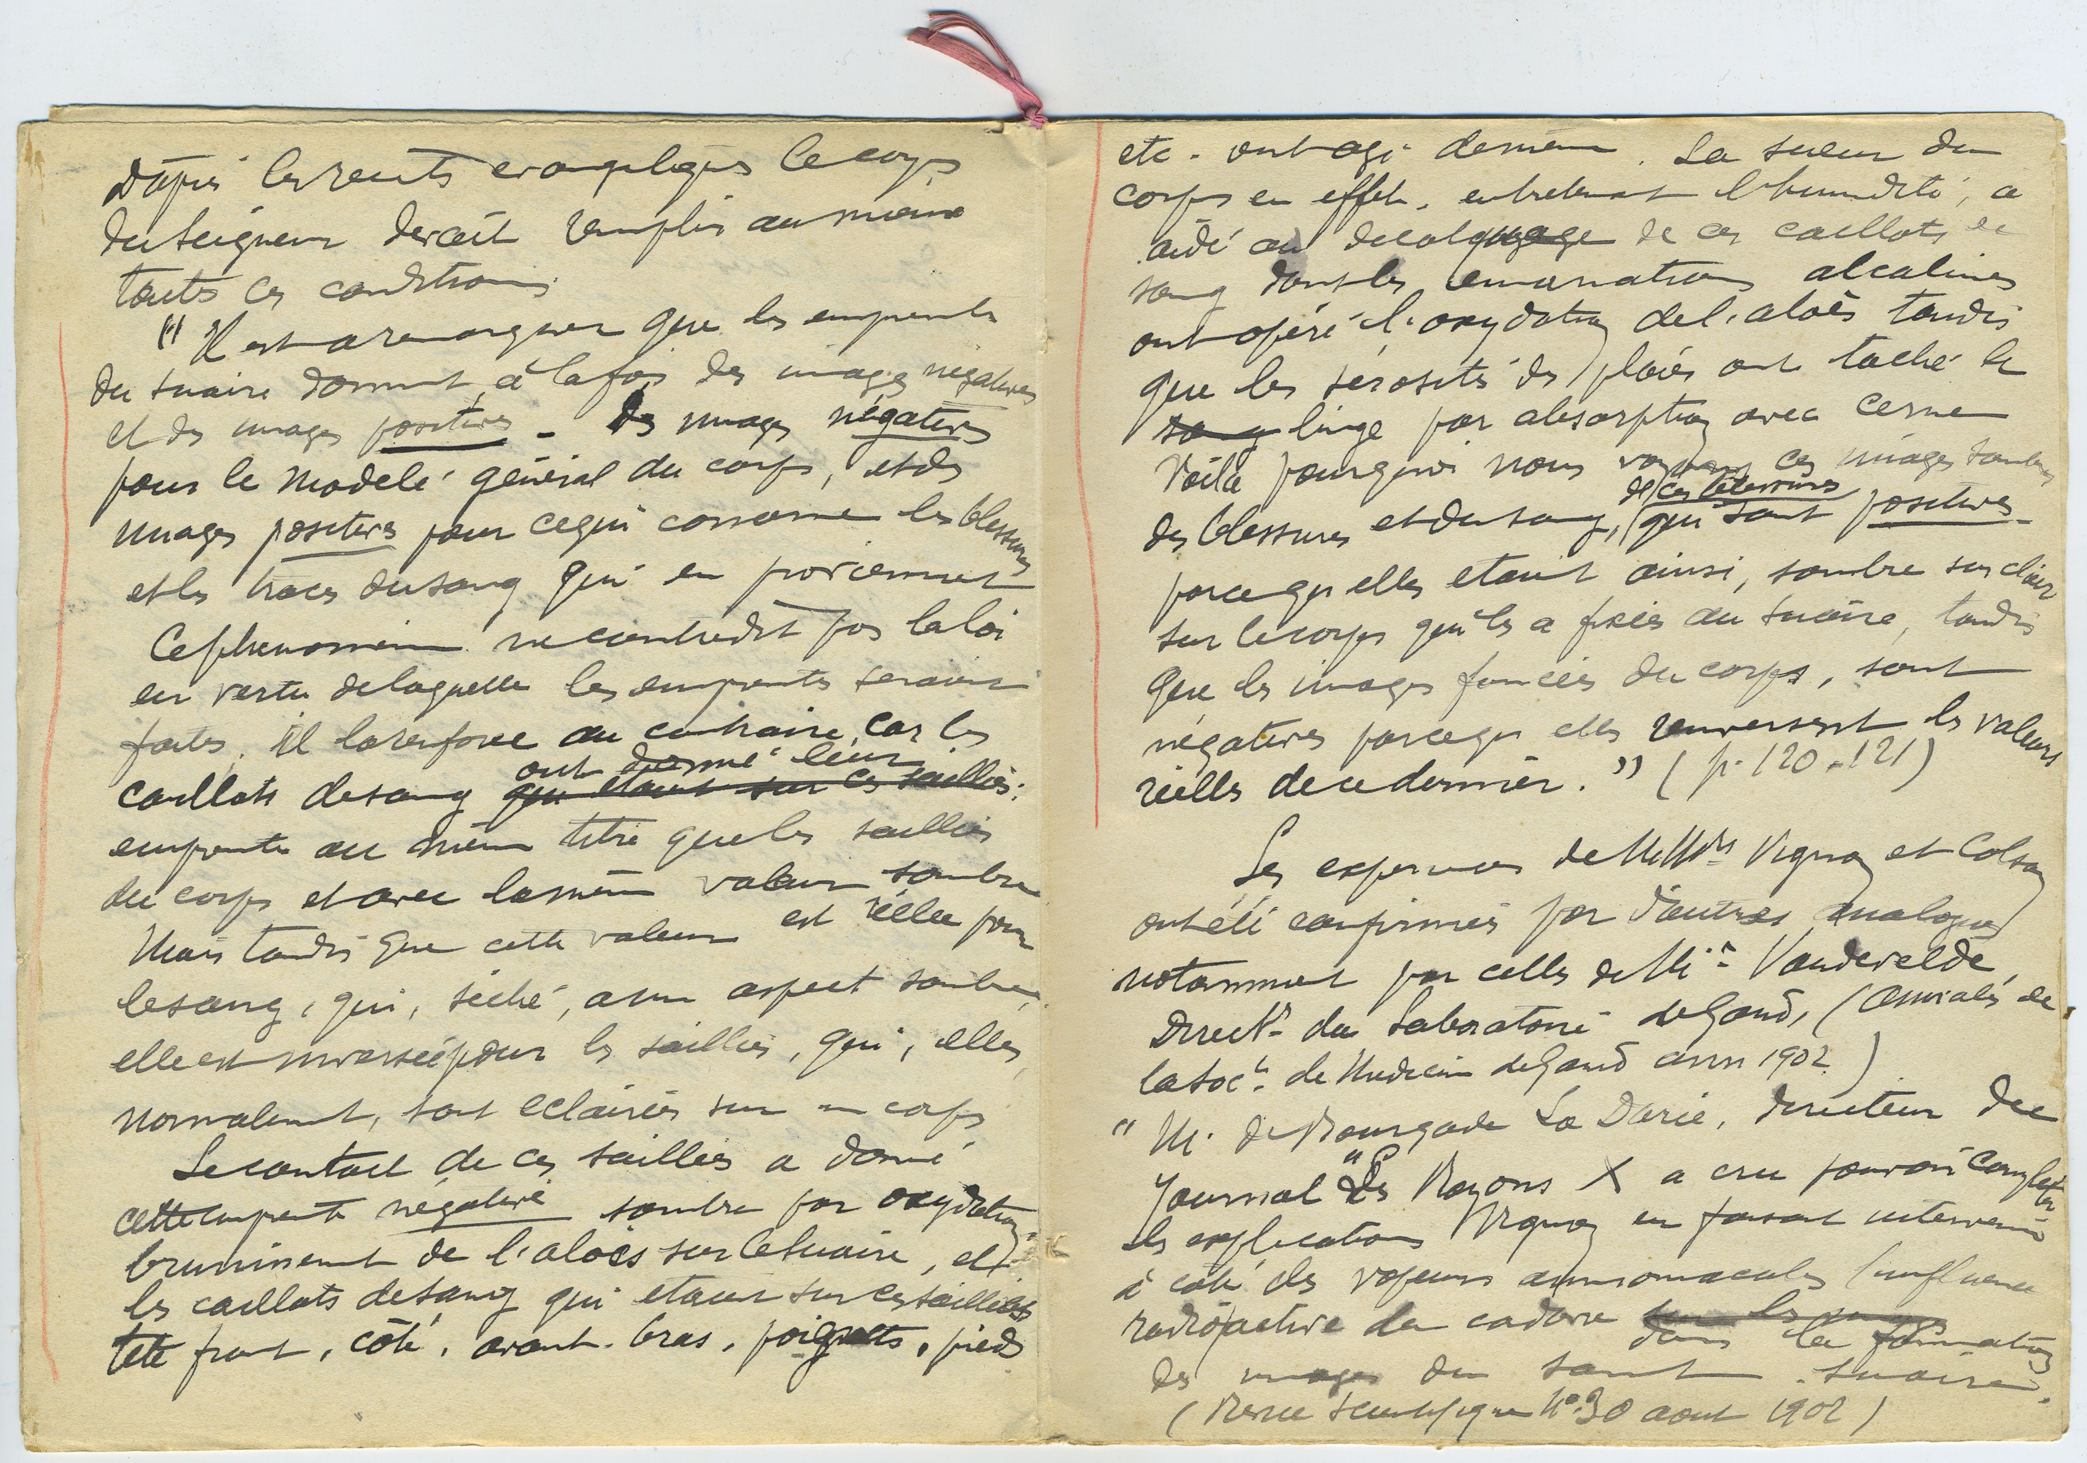 D'après les récits évangéliques le corps
du Seigneur devait remplir au moins
toutes ces conditions
"Il est a remarquer que les empreintes
du suaire donnent à la fois des images négatives
et des images positives _ des images négatives
pour le modelé général du corps, et des
images positives pour ce qui concerne les blessures
et les traces du sang qui en proviennent
Ce phenomène ne contredit pas la loi
en vertu de laquelle les empreintes seraient
faites. il la renforce au contraire, car les
ont donné leur
caillots de sang qui étaient sur ces saillies:
empreinte au même titre que les saillies
du corps et avec la même valeur sombre
Mais tandis que cette valeur est réelle pour
le sang, qui, séché, a un aspect sombre,
elle est inversée pour les saillies, qui, elles,
normalement, sont eclairées sur un corps
Le contact de ces saillies a donné
cette empreinte négative sombre par oxydation
brunissement de l'aloès sur le suaire, et
les caillots de sang qui etaient sur ces saillies
tête front, côté, avant-bras, poignets, pieds
etc. ont agi de même. La sueur du
corps en effet, entretenant l'humidité, a
aidé au decalquage de ces caillots de
sang dont les emanations alcalines
ont opéré l'oxydation de l'aloès tandis
que les sérosités des plaies ont taché le
sang linge par absorption avec cerne
Voilà pourquoi nous voyons ces images sombres
de ces dernières
des blessures et du sang, qui sont positives
parce qu'elles etaient ainsi, sombre sur clair
sur le corps qui les a fixées au suaire, tandis
que les images foncées du corps, sont
négatives parce qu'elles renversent les valeurs
réelles de ce dernier." (p. 120-121)
Les experiences de MM Vignon et Colson
ont été confirmées par d'autres analogues
notamment par celles de Mr Vandevelde,
Directr du Laboratoire de Gand, (Annales de
la Socté de Medecine de Gand ann 1902)
"M. de Bourgade La Dardie, directeur du
Journal "Les Rayons X a cru pouvoir completer
les explications Vignon en faisant intervenir
à côté des vapeurs ammoniacales l'influence
radioactive du cadavre
dans la formation
des images du saint suaire.
(Revue Scientifique No 30 aout 1902)